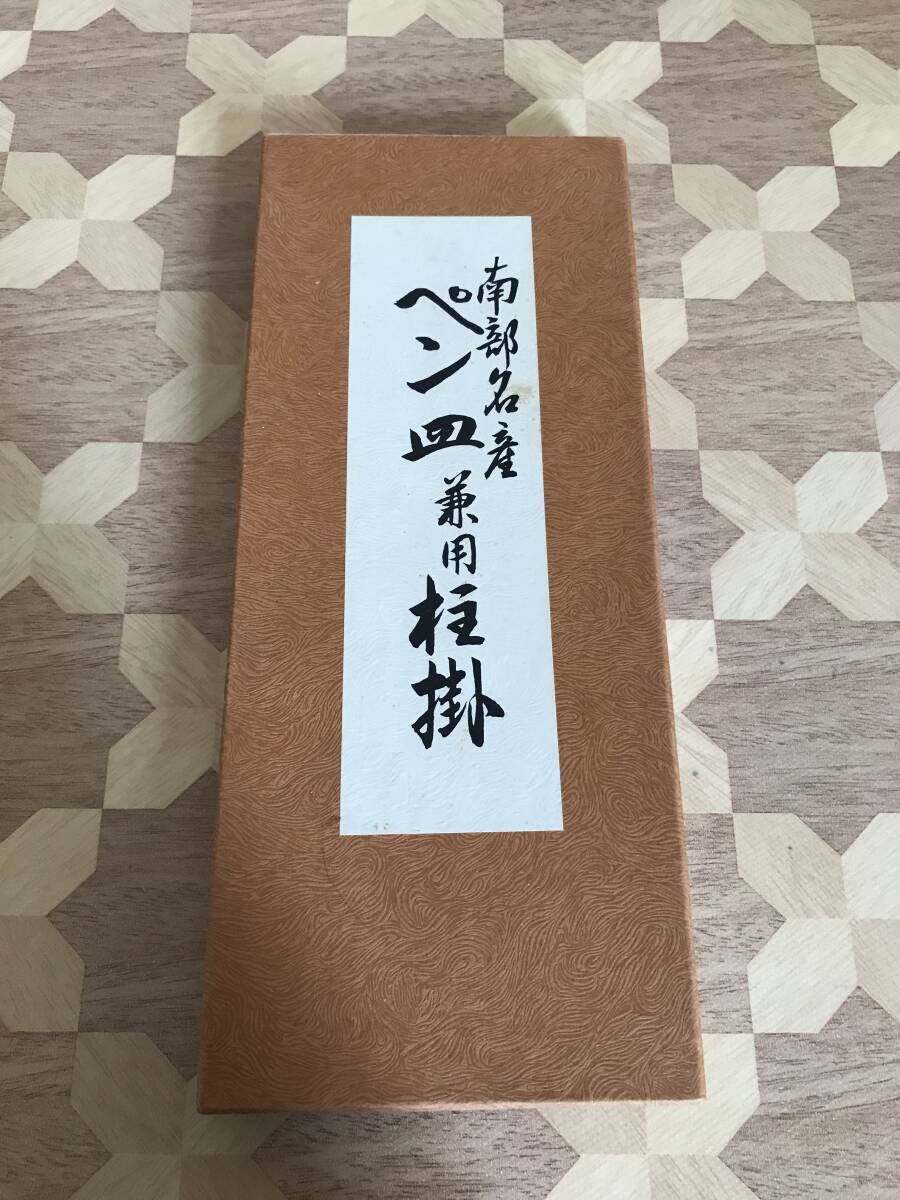 南部名産
ペン皿兼用柱掛